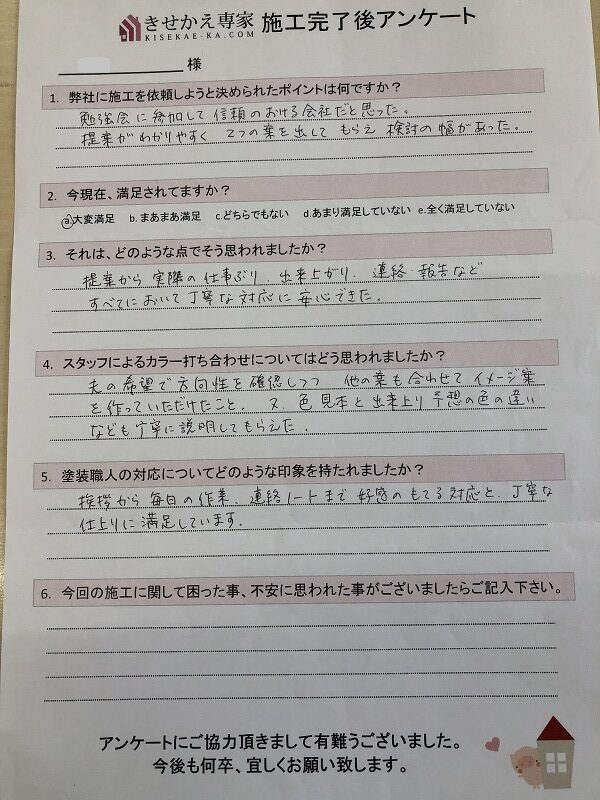 きせかえ専家 施工完了後アンケート
KISEKAE-KA.COM
様
1. 弊社に施工を依頼しようと決められたポイントは何ですか？
勉強会に参加して信頼のおける会社だと思った。
提案がわかりやすく 2つの案を出してもらえ 検討の幅があった。
2. 今現在、満足されてますか？
a.大変満足 b.まあまあ満足 c.どちらでもない d.あまり満足していない e.全く満足していない
3. それは、どのような点でそう思われましたか？
提案から実際の仕事ぶり、出来上がり、連絡・報告など
すべてにおいて丁寧な対応に安心できた。
4. スタッフによるカラー打ち合わせについてはどう思われましたか？
夫の希望で方向性を確認しつつ 他の案も合わせてイメージ案
を作っていただけたこと。又、色見本と出来上り予想の色の違い
なども丁寧に説明してもらえた。
5. 塗装職人の対応についてどのような印象を持たれましたか？
挨拶から毎日の作業、連絡ノートまで好感のもてる対応と、丁寧な
仕上りに満足しています。
6. 今回の施工に関して困った事、不安に思われた事がございましたらご記入下さい。
アンケートにご協力頂きまして有難うございました。
今後も何卒、宜しくお願い致します。